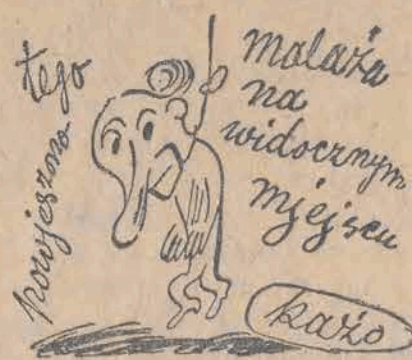 powjeszono
tego
malaża
na
widocznym
mjejscu
każo